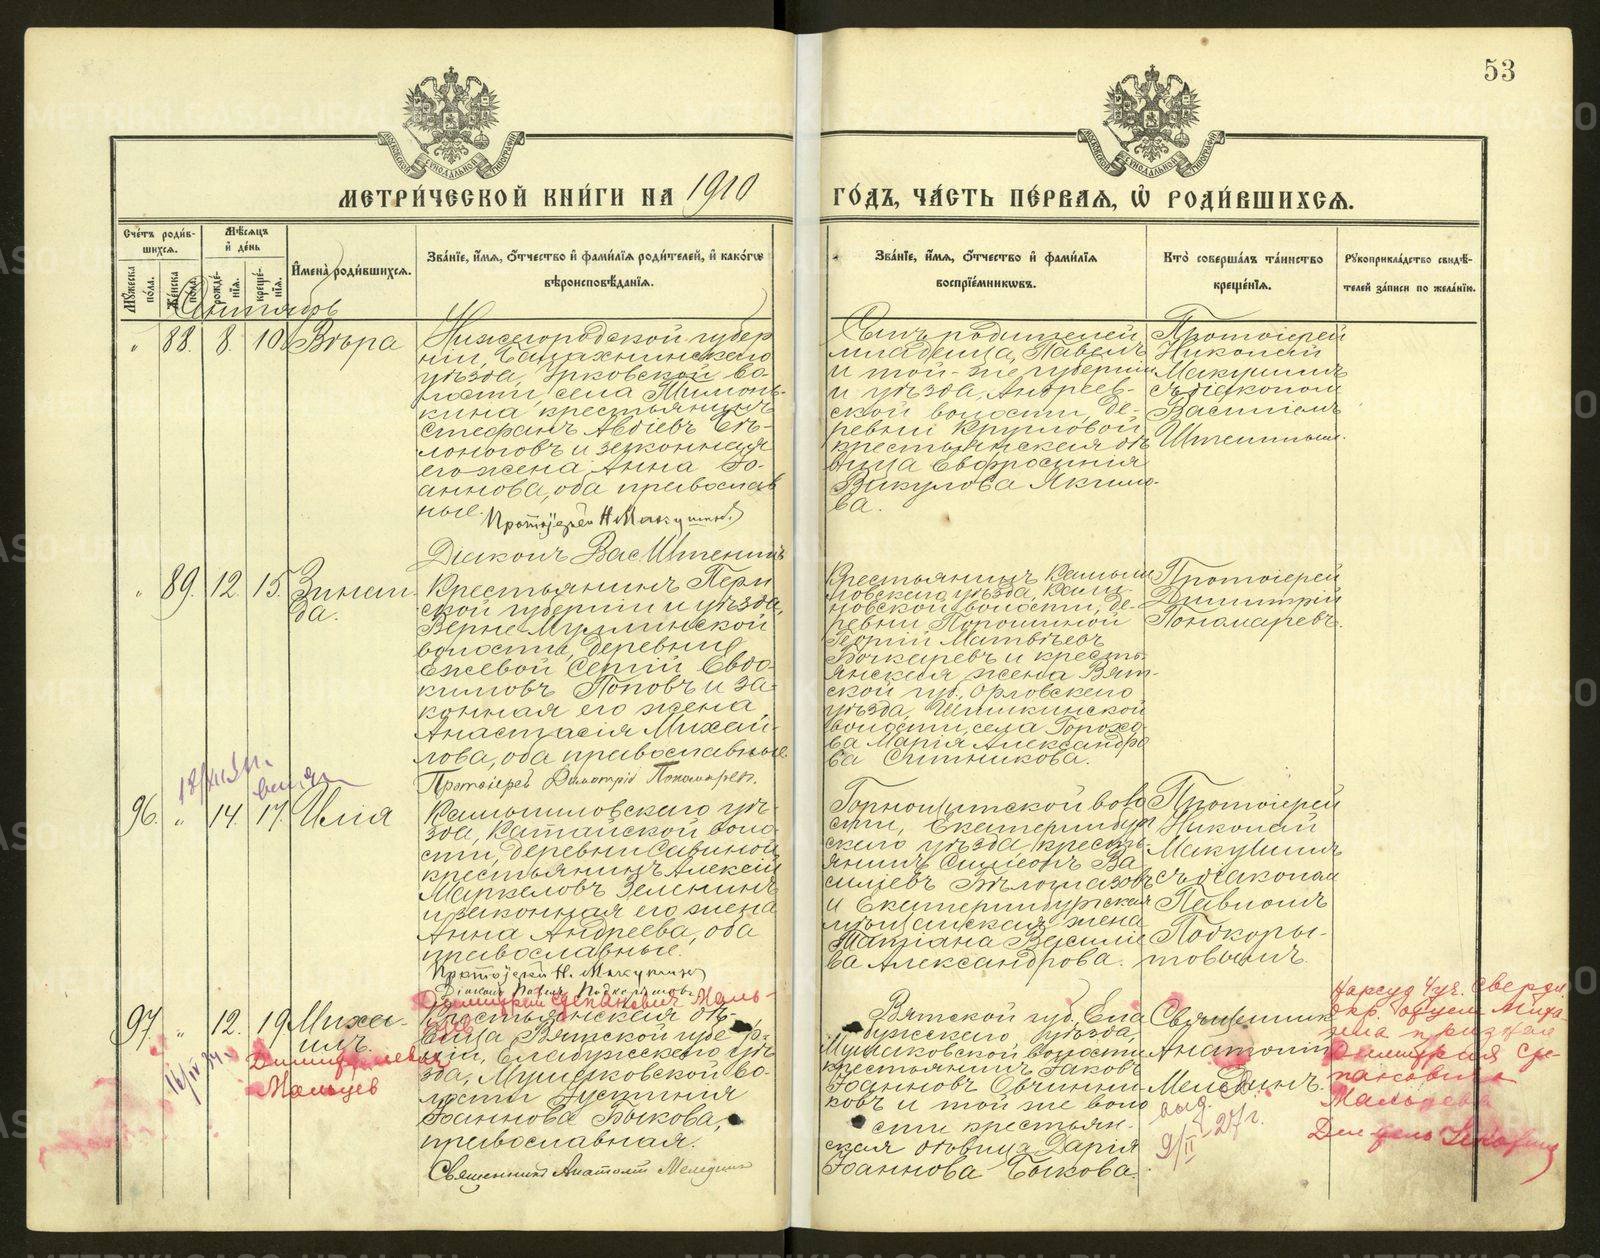 53
МЕТРИ́ЧЕСКОЙ КНИ́ГИ НА 1910
ГО́ДЪ, ЧА́СТЬ ПЕ́РВАЯ, Ѽ РОДИ́ВШИХСЯ.
Сче́тъ роди́в-
шихся.
Мꙋ́жеска по́ла.
Же́нска по́ла.
Мѣ́сяцъ
и́ де́нь
рожде́-
нія.
креще́-
нія.
И҆мена̀ роди́вшихся.
Зва́нїе, и҆́мя, ѻ҆́тчество и҆ фами́лїя роди́телей, и҆ како́гѡ
вѣроисповѣ́данїя.
Зва́нїе, и҆́мя, ѻ҆́тчество и҆ фами́лїя
воспрїе́мникѡвъ.
Кто̀ соверша́лъ та́инство
креще́нїя.
Рꙋкоприкла́дство свидѣ́-
телей за́писи по жела́нїю.
Сентябрь
" 88. 8. 10. Вѣра
Нижегородской губер
ніи, Балахнинскаго
уѣзда, Юрковской во-
лости, села Тимонь-
кина крестьянинъ
Стефанъ Авдіевъ Бѣ-
лоноговъ и законная
его жена Анна Іо-
аннова, оба православ
ные.
Протоіерей Н. Макушинъ
Діаконъ Вас. Штенинъ
Сынъ родителей
младенца, Павелъ
и той-же губерніи
и уѣзда, Андреев-
ской волости, де-
ревни Кругловой
крестьянская дѣ
вица Евфросинія
Викулова Якимо-
ва.
Протоіерей
Николай
Макушинъ
съ діакономъ
Василіемъ
Штенинымъ.
" 89. 12. 15. Зинаи
да.
Крестьянинъ Перм
ской губерніи и уѣзда,
Верхне-Муллинской
волости, деревни
Ежевой Сергій Евдо-
кимовъ Поповъ и за-
конная его жена
Анастасія Михай-
лова, оба православные
Протоіерей Димитрій Пономаревъ.
Крестьянинъ Камыш
ловскаго уѣзда, Кали-
новской волости, де-
ревни Порошиной
Георгій Матвѣевъ
Бочкаревъ и кресть-
янская жена Вят-
ской губ., Орловскаго
уѣзда, Шишкинской
волости, села Горохо-
ва Марія Александро
ва Ситникова.
Протоіерей
Димитрій
Пономаревъ.
96. " 14. 17. Илія
Камышловскаго уѣ-
зда, Катайской воло-
сти, деревни Савиной
крестьянинъ Алексій
Маркеловъ Зеленинъ
и законная его жена
Анна Андреева, оба
православные.
Протоіерей Н. Макушинъ
Діаконъ Павелъ Подкорытовъ
Горнощитской воло
сти, Екатеринбур
скаго уѣзда кресть-
янинъ Симеонъ Ва-
силіевъ Бѣлоглазовъ
и Екатеринбургская
мѣщанская жена
Татіана Василіе
ва Александрова.
Протоіерей
Николай
Макушинъ
съ діакономъ
Павломъ
Подкоры-
товымъ.
97 " 12. 19 Миха-
илъ.
16/IV 34 г.
Мальцев
Димитрий Степанович Маль-
цев
Крестьянская дѣ-
вица Вятской губер-
ніи, Елабужскаго уѣ-
зда, Мушаковской во-
лости Іустинія
Іоаннова Быкова,
православная.
Священникъ Анатолій Меледин
Вятской губ. Ела
бужскаго уѣзда,
Мушаковской волости
крестьянинъ Іаковъ
Іоанновъ Овчинни-
ковъ и той же воло
сти крестьян-
ская дѣвица Дарія
Іоаннова Быкова.
Священникъ
Анатолій
Мелединъ.
9/II 27 г.
Нарсуд 4 уч. Свердл.
окр. Отцем Миха
ила признал
Димитрия Сте-
пановича
Мальцева